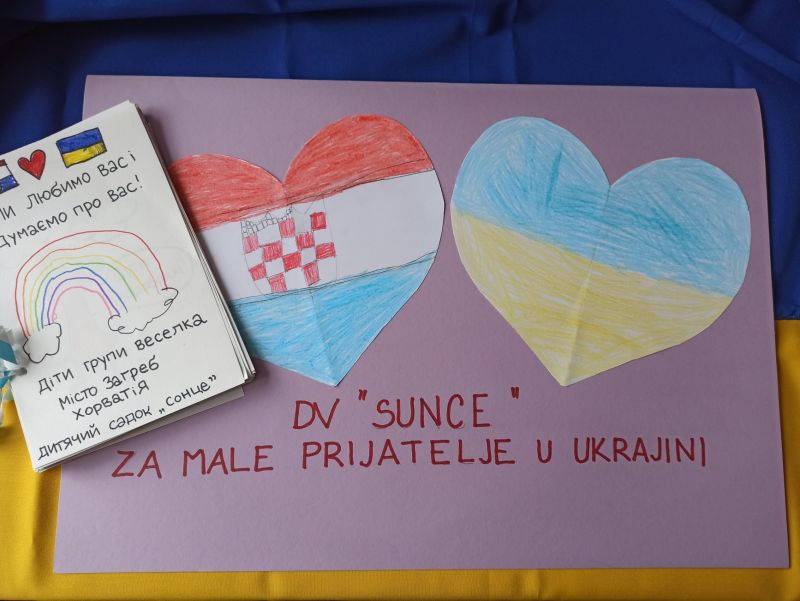 Ми любимо вас і
думаємо про вас!
Діти групи веселка
місто Загреб
Хорватія
дитячий садок „сонце”
DV "SUNCE"
ZA MALE PRIJATELJE U UKRAJINI